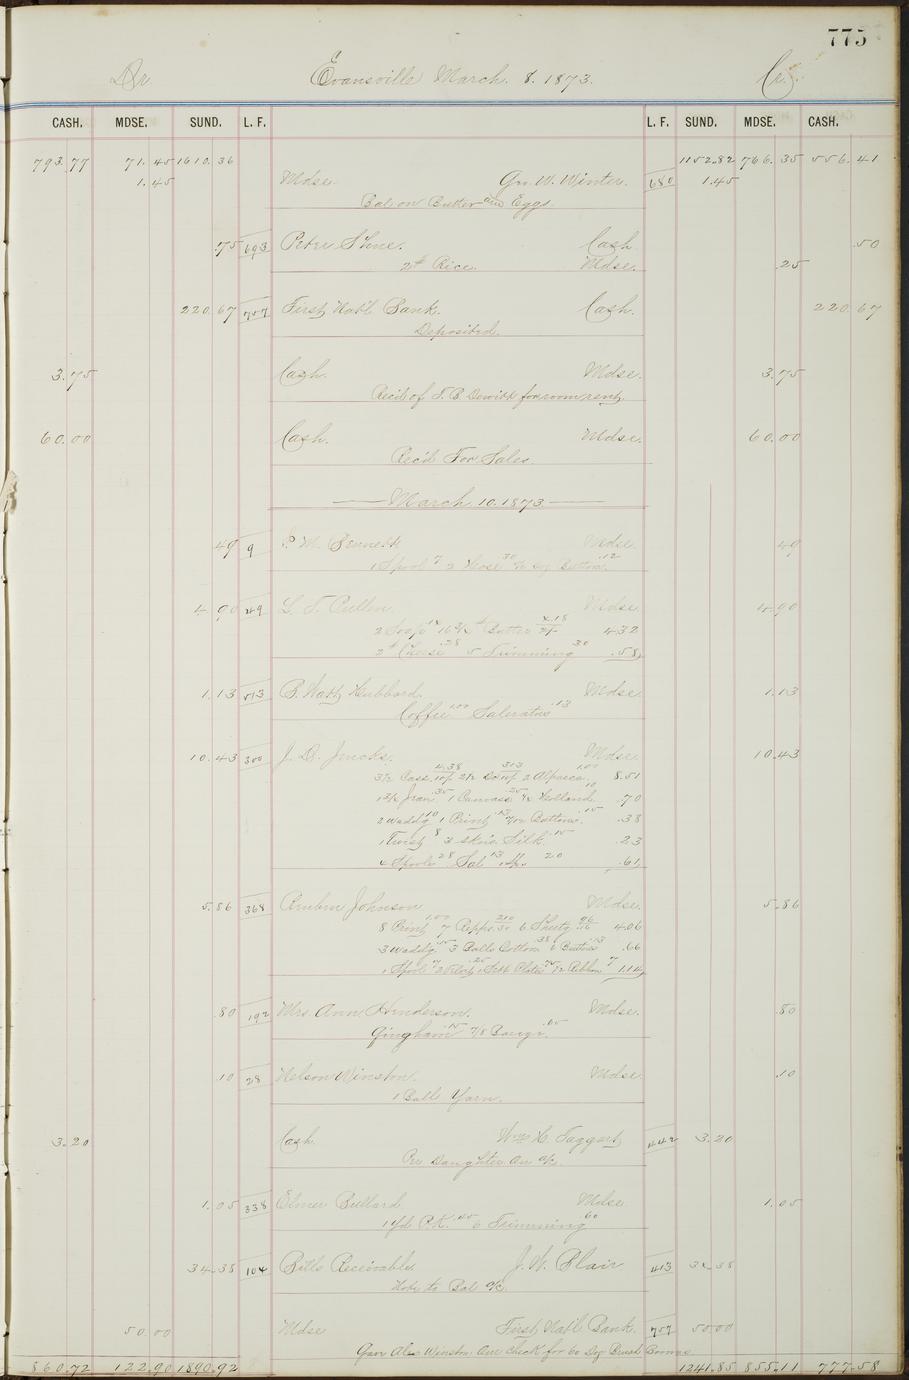 775
Dr Evansville March. 8. 1873. Cr.
CASH. MDSE. SUND. L. F. L. F. SUND. MDSE. CASH.
793.77 71.45 1610.36 1152.82 766.35 556.41
1.45 Mdse. Geo. W. Winter. 680 1.45
Bal on Butter and Eggs.
.75 693 Peter Shne. Cash .50
2# Rice. Mdse. .25
220.67 757 First Nat'l Bank. Cash. 220.67
Deposited.
3.75 Cash. Mdse. 3.75
Rec'd of for room rent.
60.00 Cash. Mdse. 60.00
Rec'd For Sales.
March. 10. 1873
.49 9 M. Bennett Mdse. .49
1 Spool 7 2 Hose .30 Buttons .12
4.90 49 L. T. Pullen. Mdse. 4.90
2 Soap 14 Butter 4.18 4.32
2# Cheese .28 5 Trimming .30 .58
1.13 513 B. Hubbard. Mdse. 1.13
Coffee 1.00 Saleratus .13
10.43 300 J. D. Jencks. Mdse. 10.43
3½ Cass. 4.38 2½ Do 313 2 Alpacca 1.00 8.51
Jean .35 1 Canvass .25 Holland 10 .70
2 Wadd'g 10 1 Print .13 Buttons .15 .38
1 Twist 8 3 skns Silk .15 .23
4 Spools 28 Sal 13 20 .61
5.86 368 Reuben Johnson Mdse. 5.86
8 Print 1.00 7 Repps 210 6 Sheet'g 96 4.06
3 Wadd'g .15 3 Balls Cotton 38 6 Buttons 13 .66
1 Spool 7 Plates Ribbon 7 1.14
.80 192 Mrs. Ann Henderson. Mdse. .80
Gingham .15 7/8
.10 28 Nelson Winston. Mdse. .10
1 Ball Yarn.
3.20 Cash Wm H. Taggart 442 3.20
Per Daughter On a/c.
1.05 338 Elmer Bullard Mdse. 1.05
1 yd P.K. .45 6 Trimming .60
34.38 104 Bills Receivable J. W. Blair 413 34.38
Note to Bal a/c.
50.00 Mdse First Nat'l Bank. 757 50.00
Gave Winston Our Check for 60 Doz Brush Brooms
860.72 122.90 1890.92 1241.85 855.11 777.58